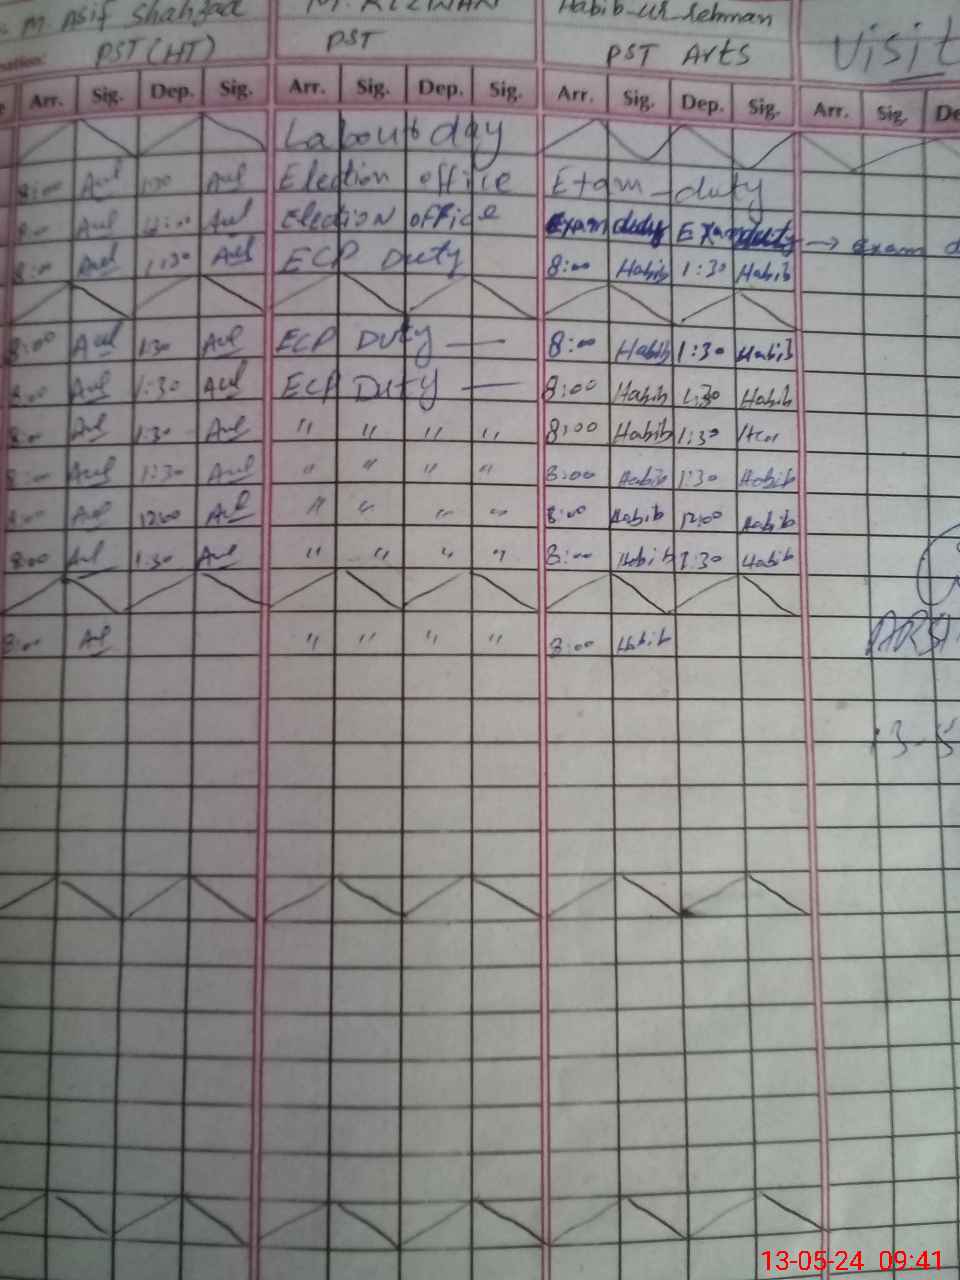 M. Asif Shahzad M. RIZWAN Habib-ur-Rehman
PST (HT) PST PST Arts Visit
Arr. Sig. Dep. Sig. Arr. Sig. Dep. Sig. Arr. Sig. Dep. Sig. Arr. Sig.
Labour day
8:00 1:30 Election office Exam-duty
8:00 12:00 Election office Exam duty Exam duty → exam
8:00 1:30 ECP Duty 8:00 Habib 1:30 Habib
8:00 1:30 ECP Duty — 8:00 Habib 1:30 Habib
8:00 1:30 ECP Duty — 8:00 Habib 1:30 Habib
8:00 1:30 " " " " 8:00 Habib 1:30
8:00 1:30 " " " " 8:00 Habib 1:30 Habib
8:00 12:00 " " " " 8:00 Habib 12:00 Habib
8:00 1:30 " " " " 8:00 Habib 1:30 Habib
8:00 " " " " 8:00 Habib
13-05-24 09:41